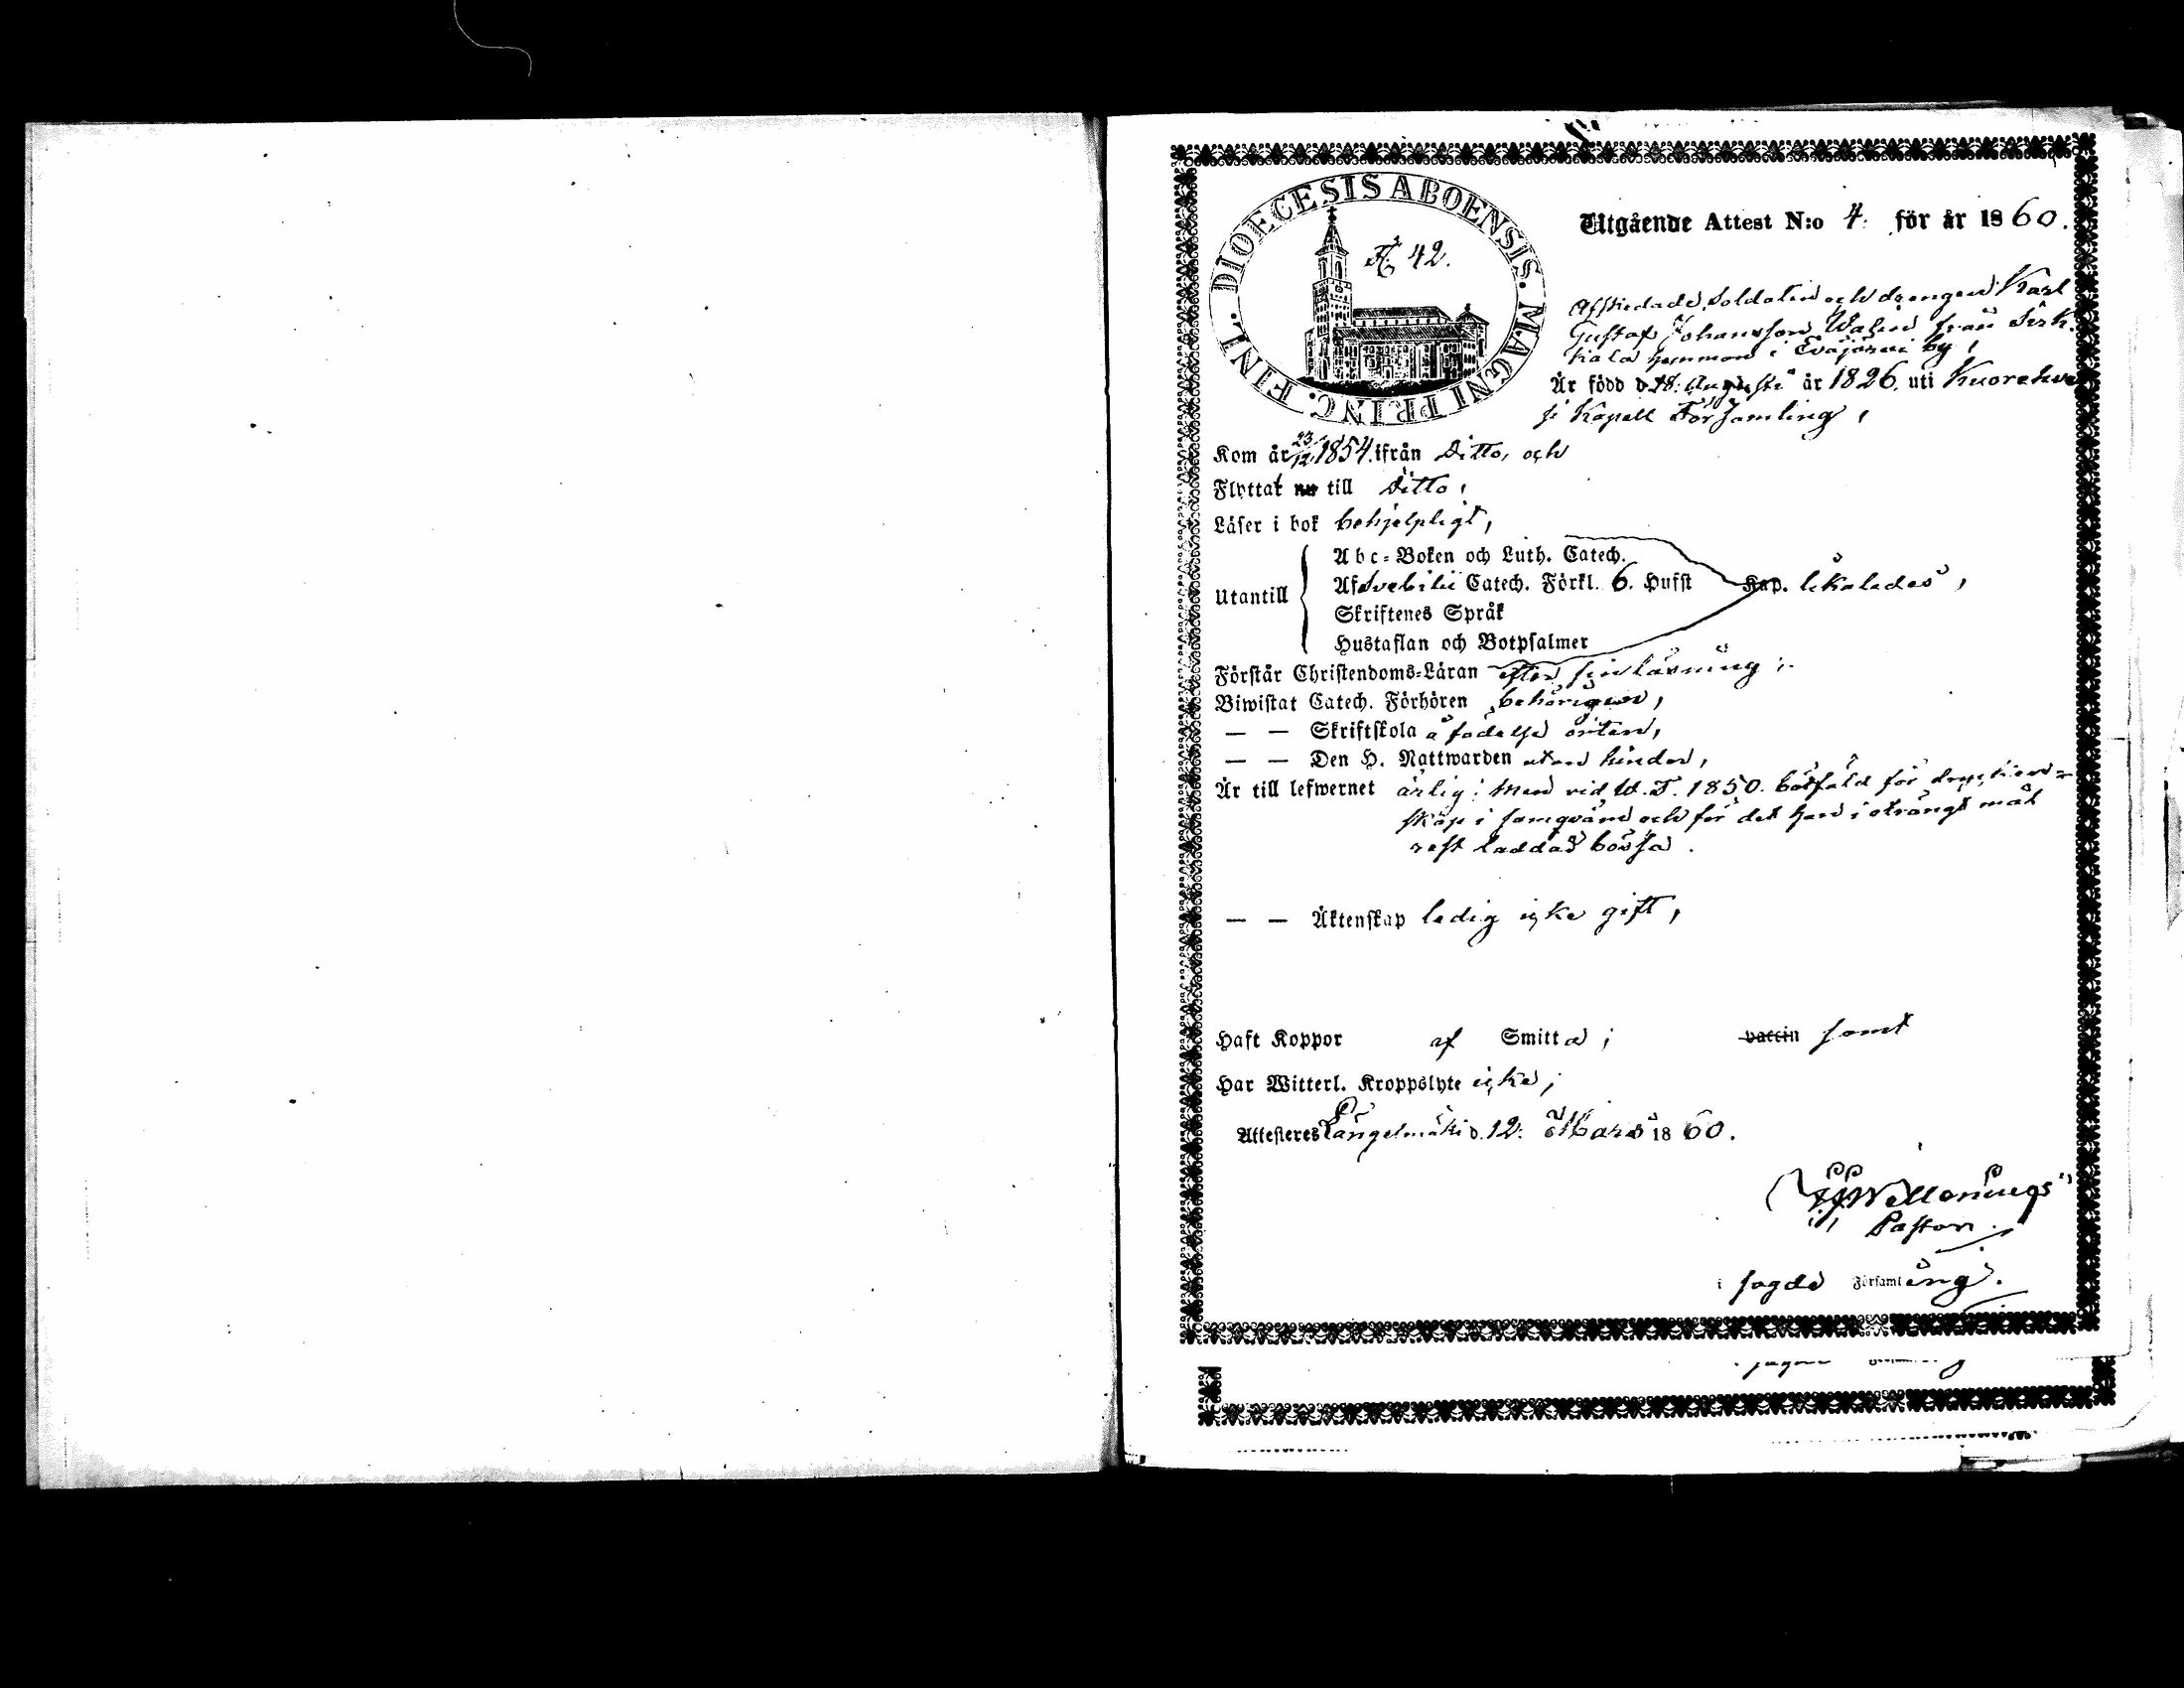 DIOECESIS ABOENSIS. MAGNI PRINC. FINL.
42.
Utgående Attest N:o 4. för år 1860.
Afskedade Soldaten och drängen Karl
Gustaf Johansson Walin från Sirk
kala hemman i Eväjärvi by,
Är född d. 18. Augusti år 1826. uti Kuorehve
si Kapell Församling,
Kom år 23/12 1854. ifrån Ditto, och
Flyttat nu till Ditto,
Läser i bok behjelpligt,
Utantill
Abc-Boken och Luth. Catech.
Af Svebilii Catech. Förkl. 6. Hufst Kap. likaledes,
Skriftenes Språk
Hustaflan och Botpsalmer
Förstår Christendoms-Läran efter sin läsning;
Biwistat Catech. Förhören behörigen,
— — Skriftskola å födelse orten,
— — Den H. Nattwarden utan hinder,
Är till lefwernet ärlig: Men vid W.T. 1850. bötfäld för drycken=
skap i samqväm och för det han i oträngt mål
rest laddad bössa.
— — Äktenskap ledig icke gift,
Haft Koppor af Smitta; vaccin samt
Har Witterl. Kroppslyte icke;
Attesteres Längelmäki d. 12. Mars 1860.
Pastor.
i sagde Församling.